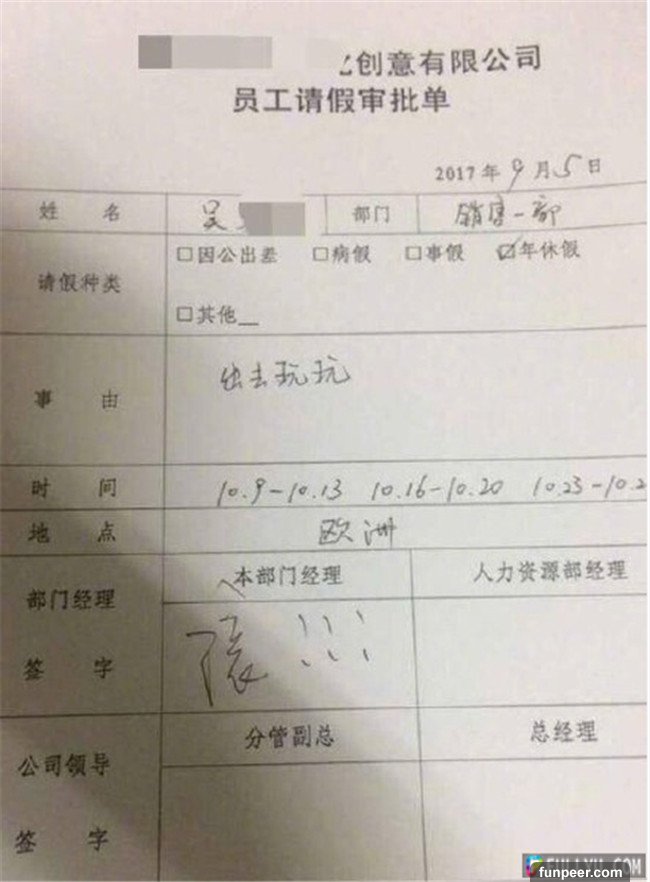 创意有限公司
员工请假审批单
2017年9月5日
姓 名 吴 部门 销售一部
请假种类 □因公出差 □病假 □事假 ☑年休假
□其他__
事 由 出去玩玩
时 间 10.9-10.13 10.16-10.20 10.23-10.2
地 点 欧洲
部门经理 本部门经理 人力资源部经理
签 字 滚!!!
公司领导 分管副总 总经理
签 字
funpeer.com